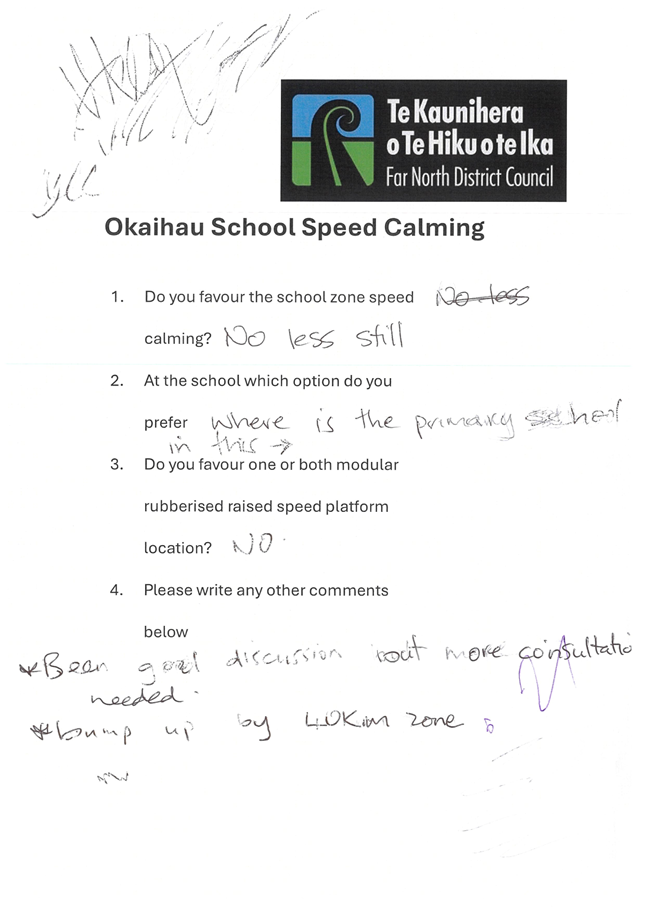 Te Kaunihera
o Te Hiku o te Ika
Far North District Council
Okaihau School Speed Calming
1. Do you favour the school zone speed No less
calming? No less still
2. At the school which option do you
prefer where is the primary school
in this →
3. Do you favour one or both modular
rubberised raised speed platform
location? NO
4. Please write any other comments
below
*Been good discussion but more consultatio
needed.
*bump up by 40Km zone